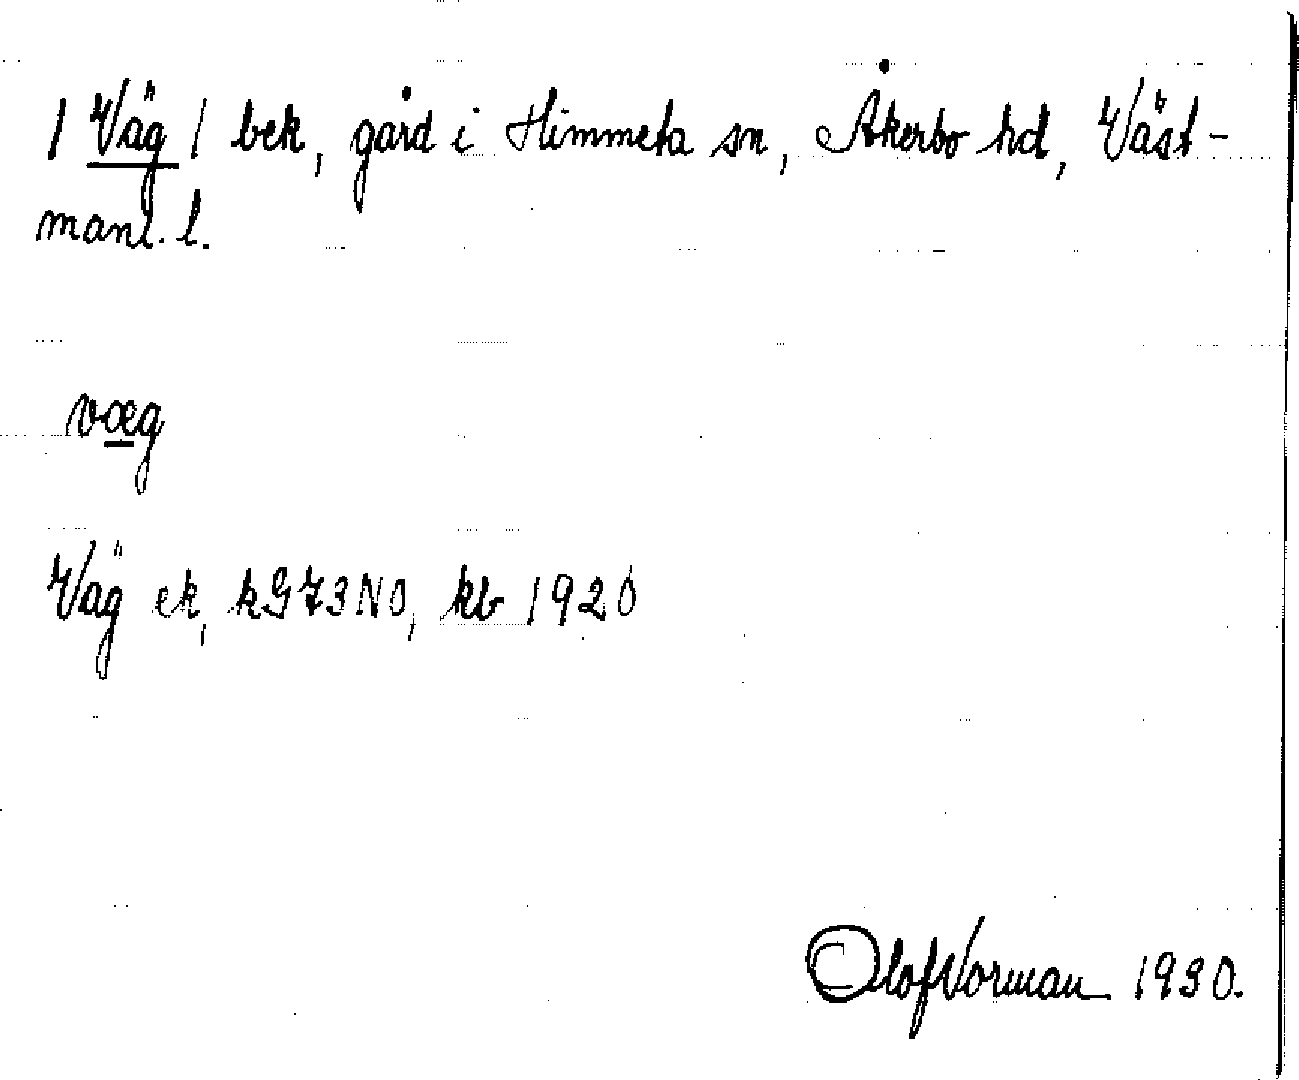 / Väg / bek, gård i Himmeta sn, Åkerbo hd, Väst-
manl. l.
væg
Väg ek, kG73NO, kb 1920
Olof Norman 1930.